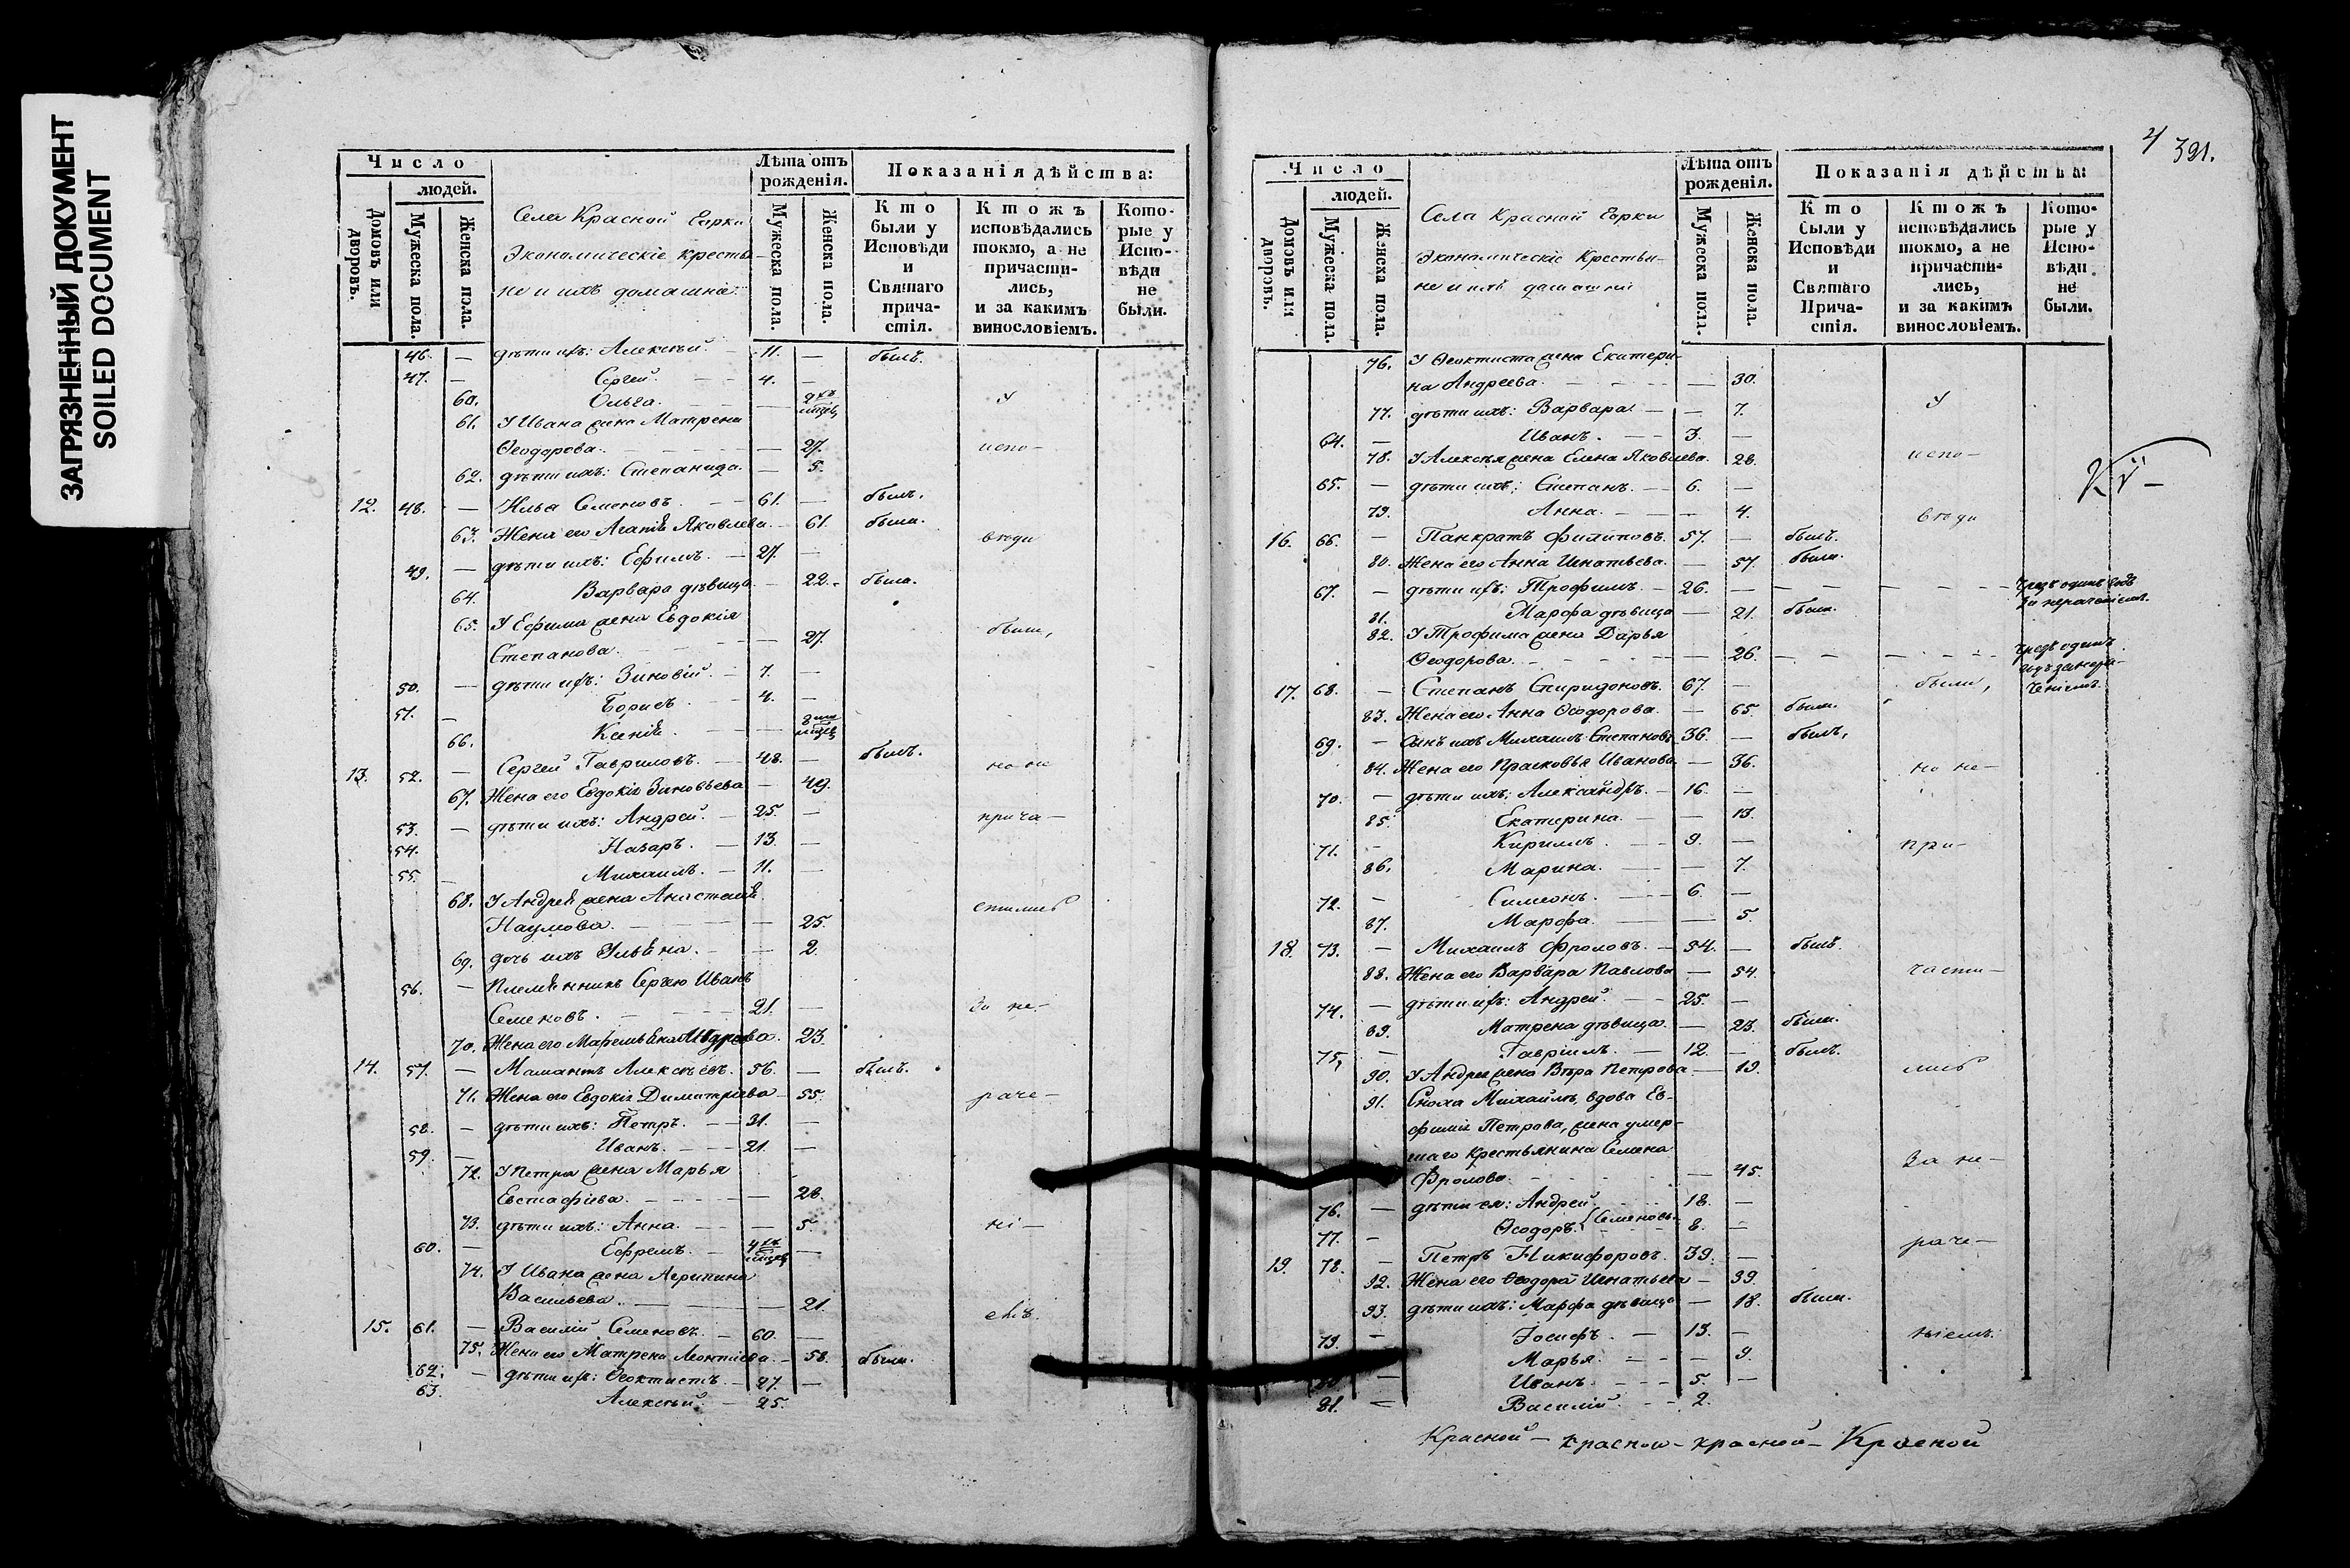 ЗАГРЯЗНЕННЫЙ ДОКУМЕНТ
SOILED DOCUMENT
Число
людей.
Домовъ или дворовъ.
Мужеска пола.
Женска пола.
Села Красной Горки
Экономическіе крестья-
не и ихъ домашніе
Лѣта отъ рожденія.
Мужеска пола.
Женска пола.
Показанія дѣйства:
Кто были у Исповѣди и Святаго причастія.
Ктожъ исповѣдались токмо, а не причастились, и за какимъ винословіемъ.
Которые у Исповѣди не были.
46. — дѣти ихъ: Алексѣй. 11. — былъ.
47. — Сергей. 4. —
60. Ольга. — 9 хъ мѣсяц
У
61. У Ивана жена Матрена
Ѳеодорова. — 27.
испо-
62. дѣти ихъ: Степанида. — 5.
12. 48. — Илья Семеновъ. 61. — былъ.
63. Жена его Агапія Яковлева. 61. была.
вѣди
49. — дѣти ихъ: Ефимъ. 27. —
64. Варвара дѣвица. — 22. была.
65. У Ефима жена Евдокія
Степанова. — 27.
были,
50. — дѣти ихъ: Зиновій. 7. —
51. — Борисъ. 4. —
66. Ксенія. — 8 ми мѣсяц
13. 52. — Сергей Гавриловъ. 48. — былъ.
но не
67. Жена его Евдокія Зиновьева — 49.
53. — дѣти ихъ: Андрей. 25. —
прича-
54. Назаръ. 13. —
55. — Михаилъ. 11. —
68. У Андрея жена Анастасія
Наумова. — 25.
стились
69. дочь ихъ Ульяна. — 2.
56. — Племянникъ Сергею Иванъ
Семеновъ. 21. —
За не-
70. Жена его 23.
14. 57. — Мамантъ Алексѣевъ. 56. — былъ.
71. Жена его Евдокія Димитріева — 55.
раче-
58. — дѣти ихъ: Петръ. 31. —
59. — Иванъ. 21. —
72. У Петра жена Марья
Евстафіева. — 28.
73. дѣти ихъ: Анна. — 5.
ні-
60. — Ефремъ. 4 хъ мѣсяц —
74. У Ивана жена Агрипина
Васильева. — 21.
емъ.
15. 61. — Василій Семеновъ. 60. —
75. Жена его Матрена Леонтіева. — 58. была.
62. — дѣти ихъ: Ѳеоктистъ. 27. —
63. Алексѣй. 25.
4 391.
Число
людей.
Домовъ или дворовъ.
Мужеска пола.
Женска пола.
Села Красной Горки
Экономическіе Крестья-
не и ихъ домашніе
Лѣта отъ рожденія.
Мужеска пола.
Женска пола.
Показанія дѣйства:
Кто были у Исповѣди и Святаго Причастія.
Ктожъ исповѣдались токмо, а не причастились, и за какимъ винословіемъ.
Которые у Исповѣди не были.
76. У Ѳеоктиста жена Екатери-
на Андреева. — 30.
77. дѣти ихъ: Варвара. — 7.
У
64. — Иванъ. 3. —
78. У Алексѣя жена Елена Яковлева. 28.
испо-
65. — дѣти ихъ: Степанъ. 6. —
79. Анна. — 4.
вѣди
16. 66. — Панкратъ Филиповъ. 57. — былъ.
80. Жена его Анна Игнатьева. — 57. была.
67. — дѣти ихъ: Трофимъ. 26. — чрезъ одинъ годъ за нераченіемъ.
81. Марфа дѣвица — 21. была.
82. У Трофима жена Дарья
Ѳеодорова. — 26. — чрезъ одинъ годъ за нера-
ченіемъ.
17. 68. — Степанъ Спиридоновъ. 67. —
были,
83. Жена его Анна Ѳеодорова. — 65. была.
69. — Сынъ ихъ Михаилъ Степановъ 36. — былъ,
84. Жена его Прасковья Иванова — 36.
но не-
70. — дѣти ихъ: Александръ. 16. —
85. Екатерина. — 13.
71. — Кирилъ. 9. —
при-
86. Марина. — 7.
72. — Симеонъ. 6. —
87. Марфа. — 5.
18. 73. — Михаилъ Фроловъ. 54. — былъ.
88. Жена его Варвара Павлова — 54.
части-
74. — дѣти ихъ: Андрей. 25. —
89. Матрена дѣвица. — 23. была.
75. — Гавріилъ. 12. — былъ.
90. У Андрея жена Вѣра Петрова — 19.
лись
91. Сноха Михаилъ, вдова Ев-
фимія Петрова, жена умер-
шаго крестьянина Семена
Фролова. — 45.
За не-
76. — дѣти ея: Андрей. 18. —
77. — Ѳеодоръ. Семеновы. 8. —
19. 78. — Петръ Никифоровъ. 39. —
раче-
92. Жена его Ѳеодора Игнатьева — 39.
93. дѣти ихъ: Марфа дѣвица — 18. была.
79. — Іосифъ. 13. —
ніемъ.
Марья. — 9.
— Иванъ. 5. —
81. — Василій. 2.
Красной — красной — красной — Красной